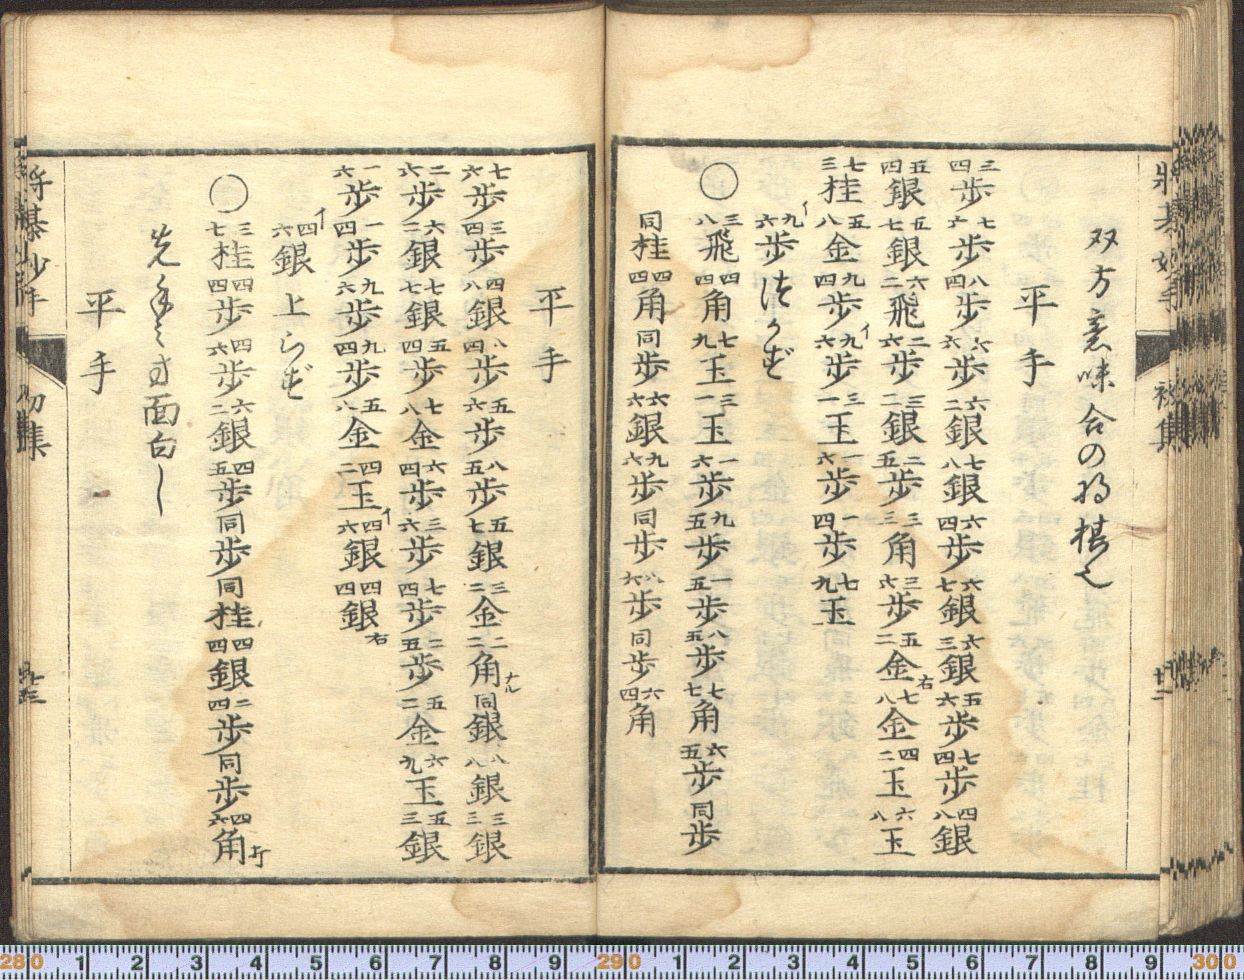 双方意味合の将棋也
平手
三四歩 七六歩 八四歩 六六歩 六二銀 七八銀 六四歩 六七銀 六三銀 五六歩 七四歩 四八銀
五四銀 五七銀 六二飛 二六歩 三二銀 二五歩 三三角 三六歩 五二金右 七八金 四二玉 六八玉
七三桂 五八金 九四歩 イ九六歩 三一玉 一六歩 一四歩 七九玉
イ九六歩つかず
〇三八飛 四四角 七九玉 三一玉 一六歩 九五歩 一五歩 八五歩 七七角 六五歩 同歩
同桂 四四角 同歩 六六銀 九六歩 同歩 八六歩 同歩 六四角
平手
七六歩 三四歩 四八銀 八四歩 五六歩 八五歩 五七銀 三二金 二二角ナル 同銀 八八銀 三三銀
二六歩 六二銀 七七銀 五四歩 七八金 六四歩 三六歩 七四歩 二五歩 五二金 六九玉 五三銀
一六歩 一四歩 九六歩 九四歩 五八金 四二玉 イ四六銀 四四銀右
イ四六銀上らず
〇三七桂 四四歩 四六歩 六二銀 四五歩 同歩 同桂 四四銀 二四歩 同歩 四六角打
先手之方面白し
平手
初集